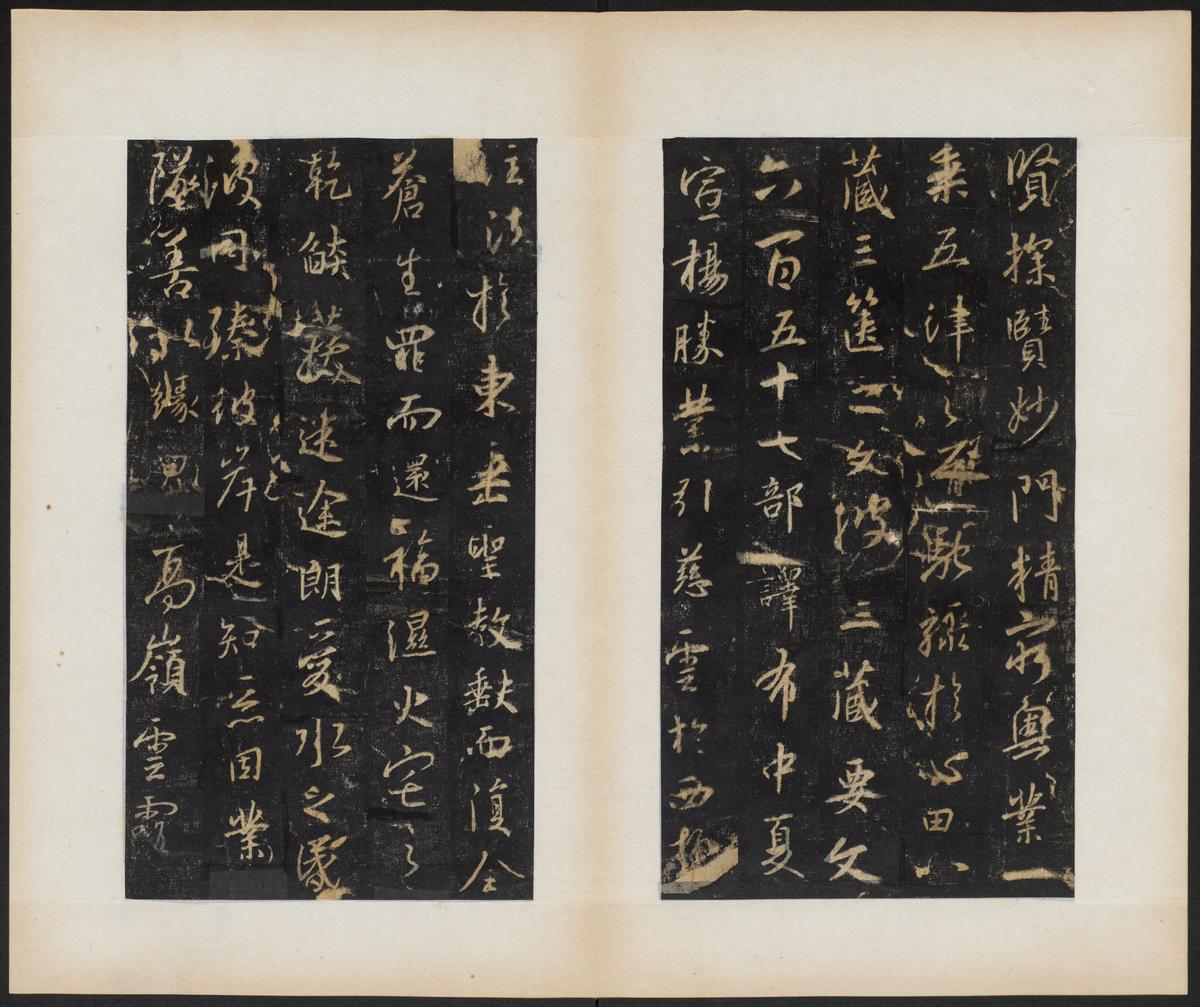 賢探賾妙門精窮奧業一
乘五律之道馳驟於心田八
藏三篋之文波三藏要文
六百五十七部譯布中夏
宣揚勝業引慈雲於西極
注法於東垂聖教缺而復全
蒼生罪而還福濕火宅之
乾焰共拔迷途朗愛水之昏
波同臻彼岸是知惡因業
墜善以緣高嶺雲露